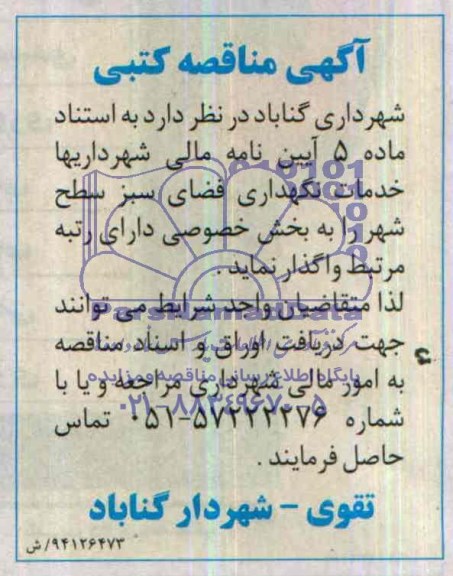 آگهی مناقصه کتبی
شهرداری گناباد در نظر دارد به استناد
ماده ۵ آیین نامه مالی شهرداریها
خدمات نگهداری فضای سبز سطح
شهر را به بخش خصوصی دارای رتبه
مرتبط واگذار نماید .
لذا متقاضیان واجد شرایط می توانند
جهت دریافت اوراق و اسناد مناقصه
به امور مالی شهرداری مراجعه و یا با
شماره ۰۵۱-۵۷۲۲۲۲۷۶ تماس
حاصل فرمایند .
تقوی - شهردار گناباد
۹۴۱۲۶۴۷۳/ش
ParsNamadData
پایگاه اطلاع رسانی مناقصه و مزایده
۰۲۱-۸۸۳۴۹۶۷۰-۵